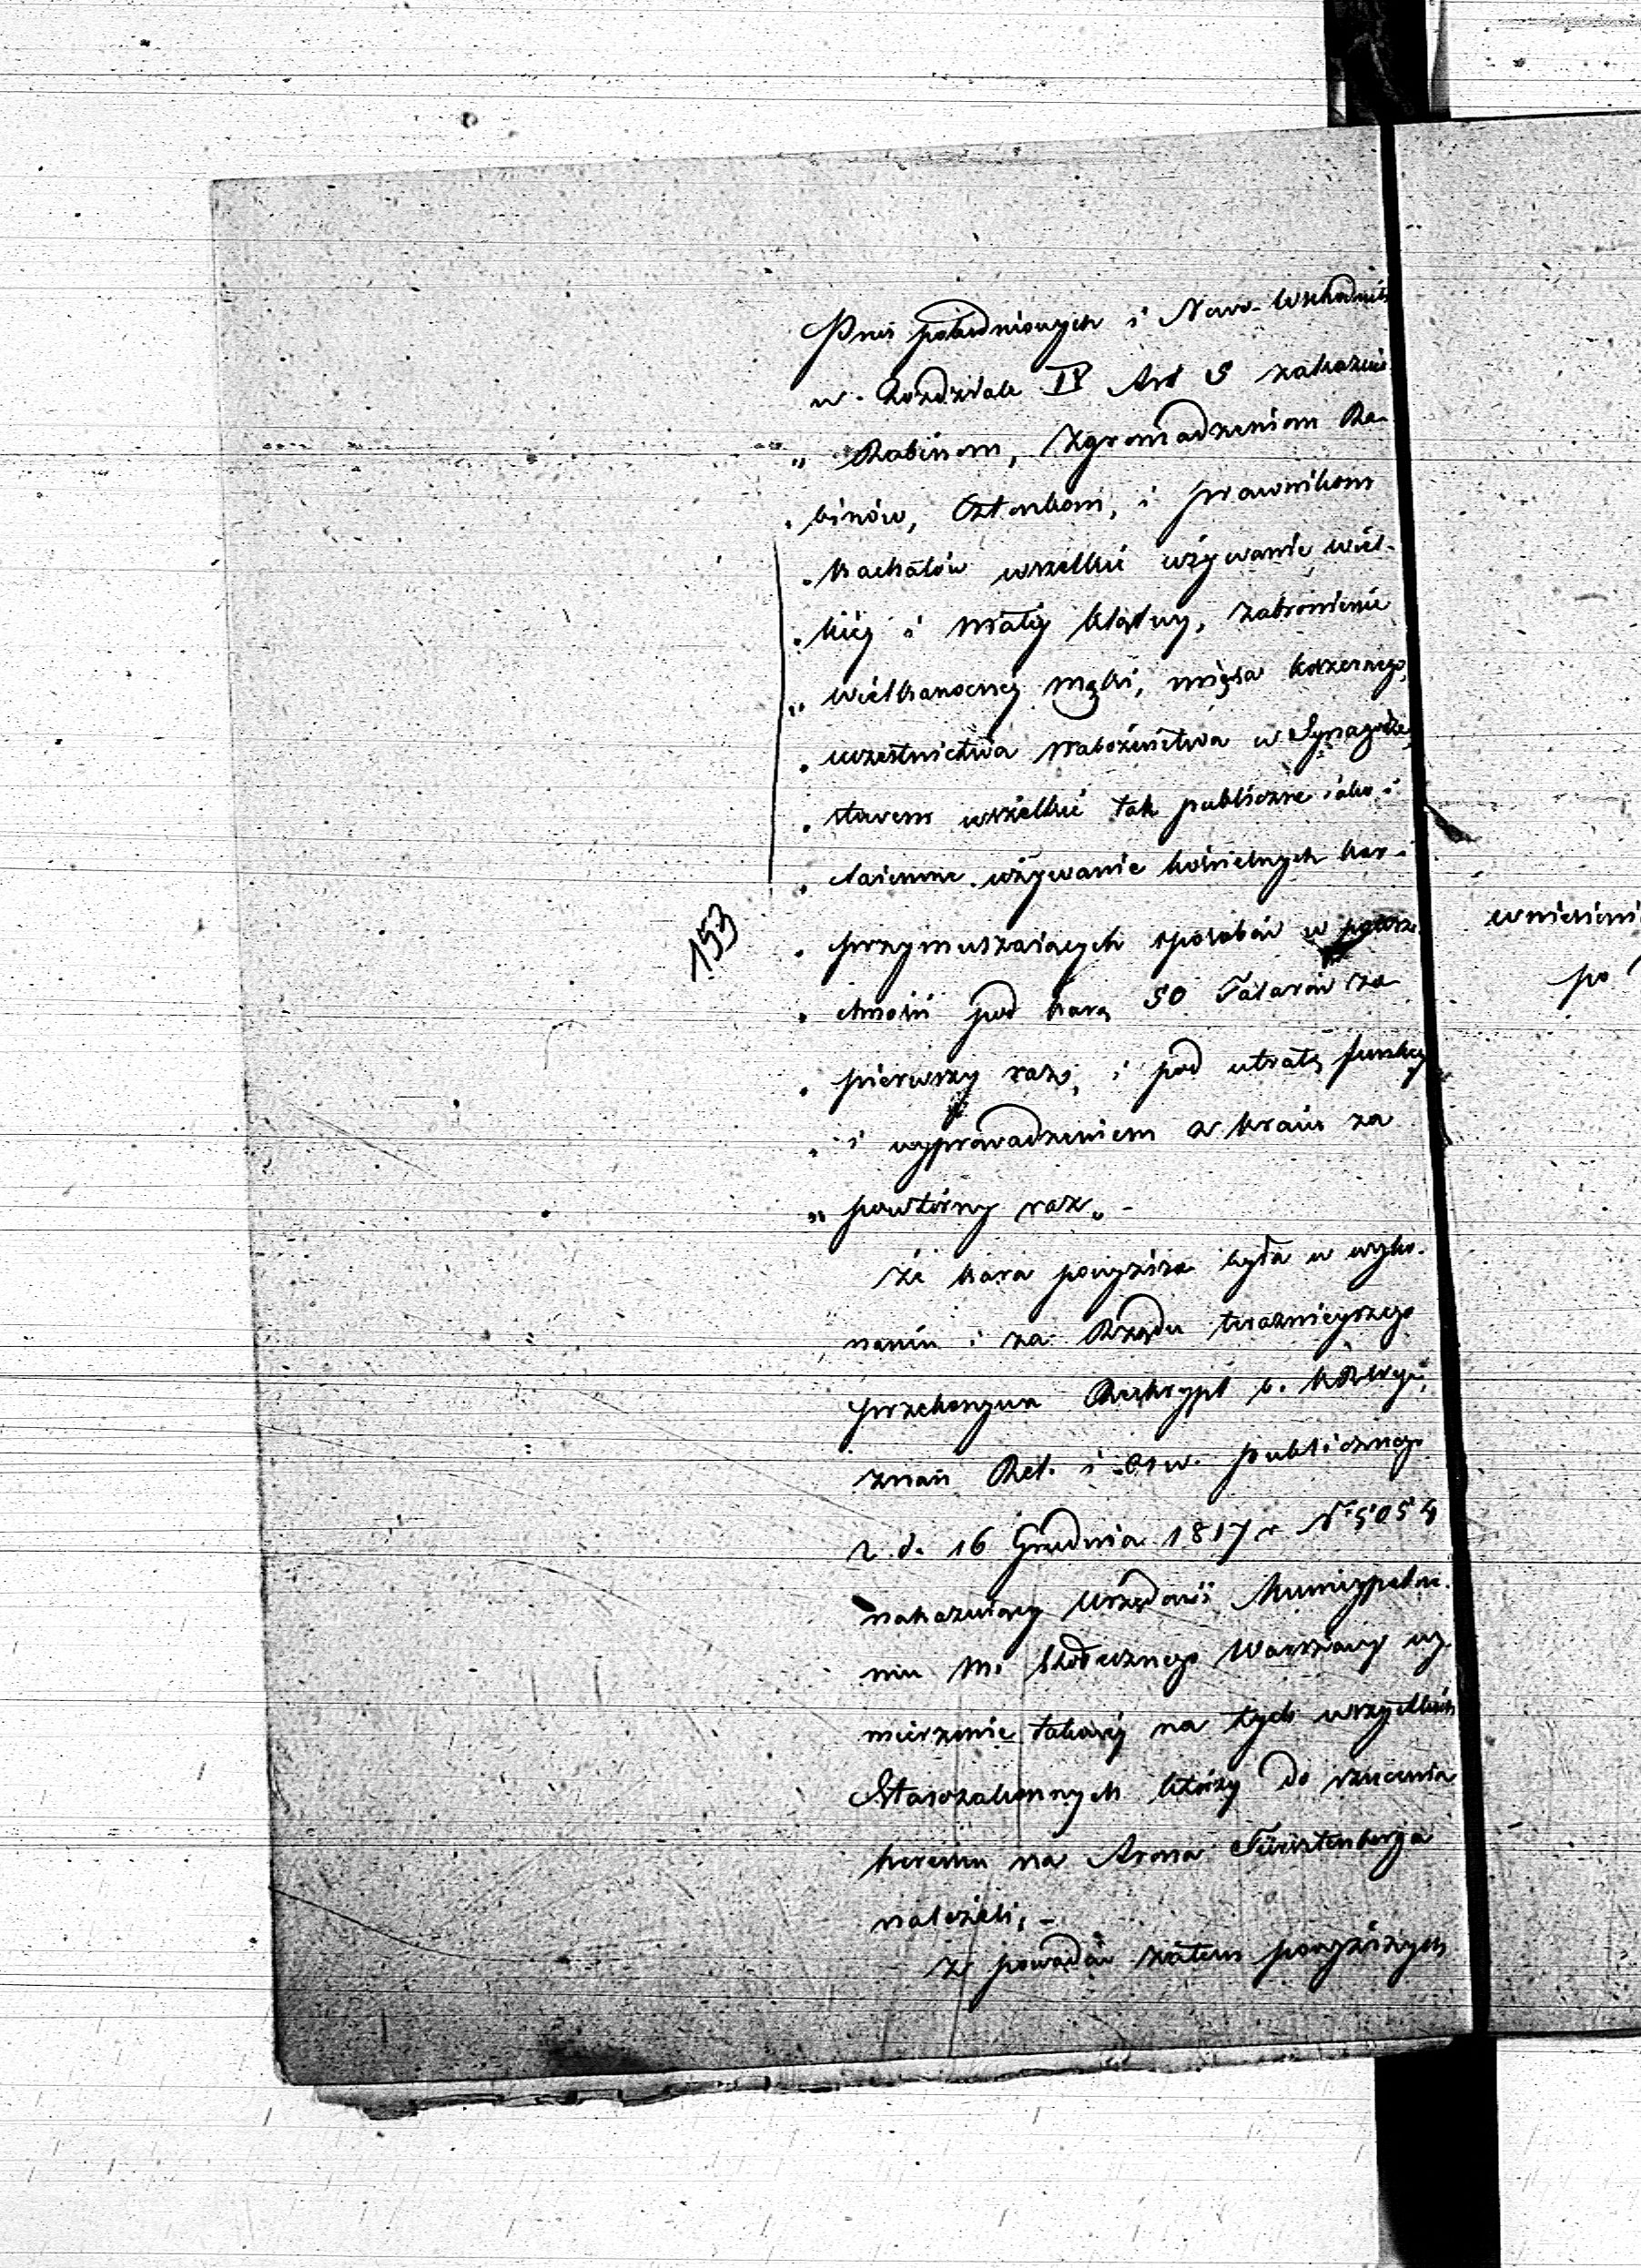 Prus południowych i Nowo-Wschodnich
w Rozdziale IV Art 5 zakazuie
„ Rabinom, Zgromadzeniom Ra-
„ binów, Członkom, i prawnikom
„ kachałów wszelkie używanie wiel-
„ kiéj i małéj klątwy, zabronienie
„ wielkanocnéj mąki, mięsa koszernego,
„ uczestnictwa nabożeństwa w Synagodze,
„ słowem wszelkie tak publiczne iako i
„ taiemne używanie kościelnych kar i
153
„ przymuszaiących sposobów w powsze
„ chności pod karą 50 Talarów za
„ pierwszy raz, i pod utratą funkcyi
„ i wyprowadzeniem z kraiu za
„ powtórny raz„ -
Że kara powyższa była w wyko-
naniu i za Rządu teraznieyszego
przekonywa Reskrypt b.
znań Rel. i Ośw. publicznego
z d. 16 Grudnia 1817 r N° 5054
nakazuiący Urzędowi Municypalne-
mu M. Stołecznego Warszawy wy-
mierzenie takowéj na tych wszystkich
Starozakonnych którzy do rzucenia
heremu na Arona Fürstenberga
należeli, -
Z powodów zatem powyższych
wniesieni
po